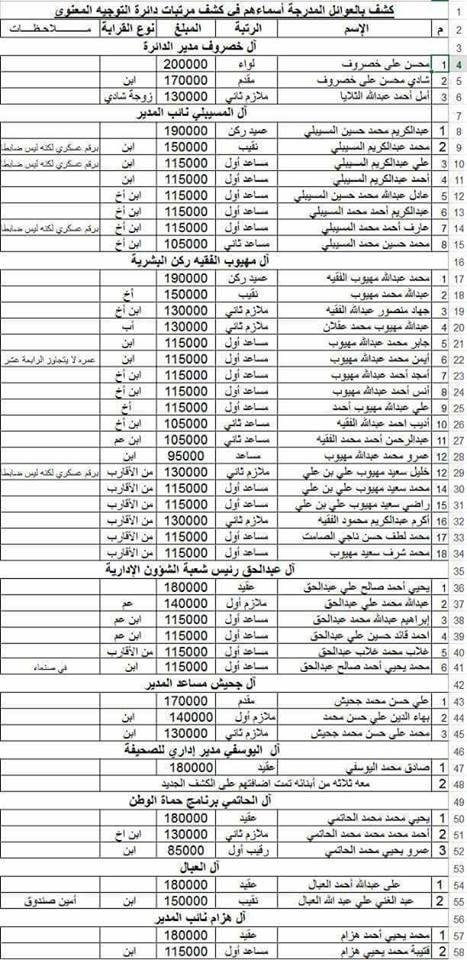 كشف بالعوائل المدرجة أسماءهم في كشف مرتبات دائرة التوجيه المعنوي 1
م الإسم الرتبة المبلغ نوع القرابة مـــلاحـظــات 2
آل خصروف مدير الدائرة 3
1 محسن علي خصروف لواء 200000 4
2 شادي محسن علي خصروف مقدم 170000 ابن 5
3 أمل أحمد عبدالله الثلايا ملازم ثاني 130000 زوجة شادي 6
آل المسيبلي نائب المدير 7
1 عبدالكريم محمد حسين المسيبلي عميد ركن 190000 8
2 محمد عبدالكريم المسيبلي نقيب 150000 ابن برقم عسكري لكنه ليس ضابط 9
3 علي عبدالكريم المسيبلي مساعد أول 115000 ابن برقم عسكري لكنه ليس ضابط 10
4 أحمد عبدالكريم المسيبلي مساعد أول 115000 ابن 11
5 عادل عبدالله محمد حسين المسيبلي مساعد أول 115000 ابن أخ 12
6 عبدالكريم أحمد محمد المسيبلي مساعد أول 115000 ابن أخ 13
7 عارف أحمد محمد المسيبلي مساعد أول 115000 ابن أخ برقم عسكري لكنه ليس ضابط 14
8 محمد حسين محمد المسيبلي مساعد ثاني 105000 ابن أخ 15
آل مهيوب الفقيه ركن البشرية 16
1 محمد عبدالله مهيوب الفقيه عميد ركن 190000 17
2 عبدالله محمد مهيوب نقيب 150000 أخ 18
3 جهاد منصور عبدالله الفقيه ملازم ثاني 130000 ابن أخ 19
4 عبدالله مهيوب محمد عقلان ملازم ثاني 130000 أب 20
5 جابر محمد عبدالله مهيوب مساعد أول 115000 ابن 21
6 أيمن محمد عبدالله مهيوب مساعد أول 115000 ابن عمره لا يتجاوز الرابعة عشر 22
7 أمجد أحمد عبدالله مهيوب مساعد أول 115000 ابن أخ 23
8 أنس أحمد عبدالله مهيوب مساعد أول 115000 ابن أخ 24
9 علي عبدالله مهيوب أحمد مساعد أول 115000 أخ 25
10 أديب احمد عبدالله الفقيه مساعد ثاني 105000 ابن أخ 26
11 عبدالرحمن أحمد محمد الفقيه مساعد ثاني 105000 ابن عم 27
12 عمرو محمد عبدالله مهيوب مساعد 95000 ابن 28
12 خليل سعيد مهيوب علي بن علي ملازم ثاني 130000 من الأقارب برقم عسكري لكنه ليس ضابط 29
14 محمد سعيد مهيوب علي بن علي مساعد أول 115000 من الأقارب 30
15 راضي سعيد مهيوب علي بن علي مساعد أول 115000 من الأقارب 31
16 أكرم عبدالكريم محمود الفقيه ملازم ثاني 130000 من الأقارب 32
17 محمد لطف حسن ناجي الصامت مساعد أول 115000 من الأقارب 33
18 محمد شرف سعيد مهيوب مساعد أول 115000 من الأقارب 34
آل عبدالحق رئيس شعبة الشؤون الإدارية 35
1 يحيي أحمد صالح علي عبدالحق عقيد 180000 36
2 عبدالله محمد علي عبدالحق ملازم أول 140000 عم 37
3 إبراهيم عبدالله محمد عبدالحق مساعد أول 115000 ابن عم 38
4 احمد قائد حسين علي عبدالحق مساعد أول 115000 ابن عم 39
5 غلاب محمد غلاب عبدالحق مساعد أول 115000 من الأقارب 40
6 محمد يحيي أحمد صالح عبدالحق مساعد أول 115000 ابن في صنعاء 41
آل جحيش مساعد المدير 42
1 علي حسن محمد جحيش مقدم 170000 43
2 بهاء الدين علي حسن محمد ملازم أول 140000 ابن 44
3 محمد علي حسن محمد جحيش ملازم ثاني 130000 ابن 45
آل اليوسفي مدير إداري للصحيفة 46
1 صادق محمد اليوسفي عقيد 180000 47
2 معه ثلاثه من أبنائه تمت اضافتهم على الكشف الجديد 48
آل الحاتمي برنامج حماة الوطن 49
1 يحيي محمد محمد الحاتمي عقيد 180000 50
2 أحمد محمد محمد محمد الحاتمي ملازم ثاني 130000 ابن اخ 51
3 عمرو يحيي محمد الحاتمي رقيب أول 85000 ابن 52
آل العبال 53
1 على عبدالله أحمد العبال عقيد 180000 54
2 عبد الغني علي عبد الله العبال نقيب 150000 ابن أمين صندوق 55
آل هزام نائب المدير 56
1 محمد يحيي أحمد هزام عقيد 180000 57
2 قتيبة محمد يحيي هزام مساعد أول 115000 ابن 58